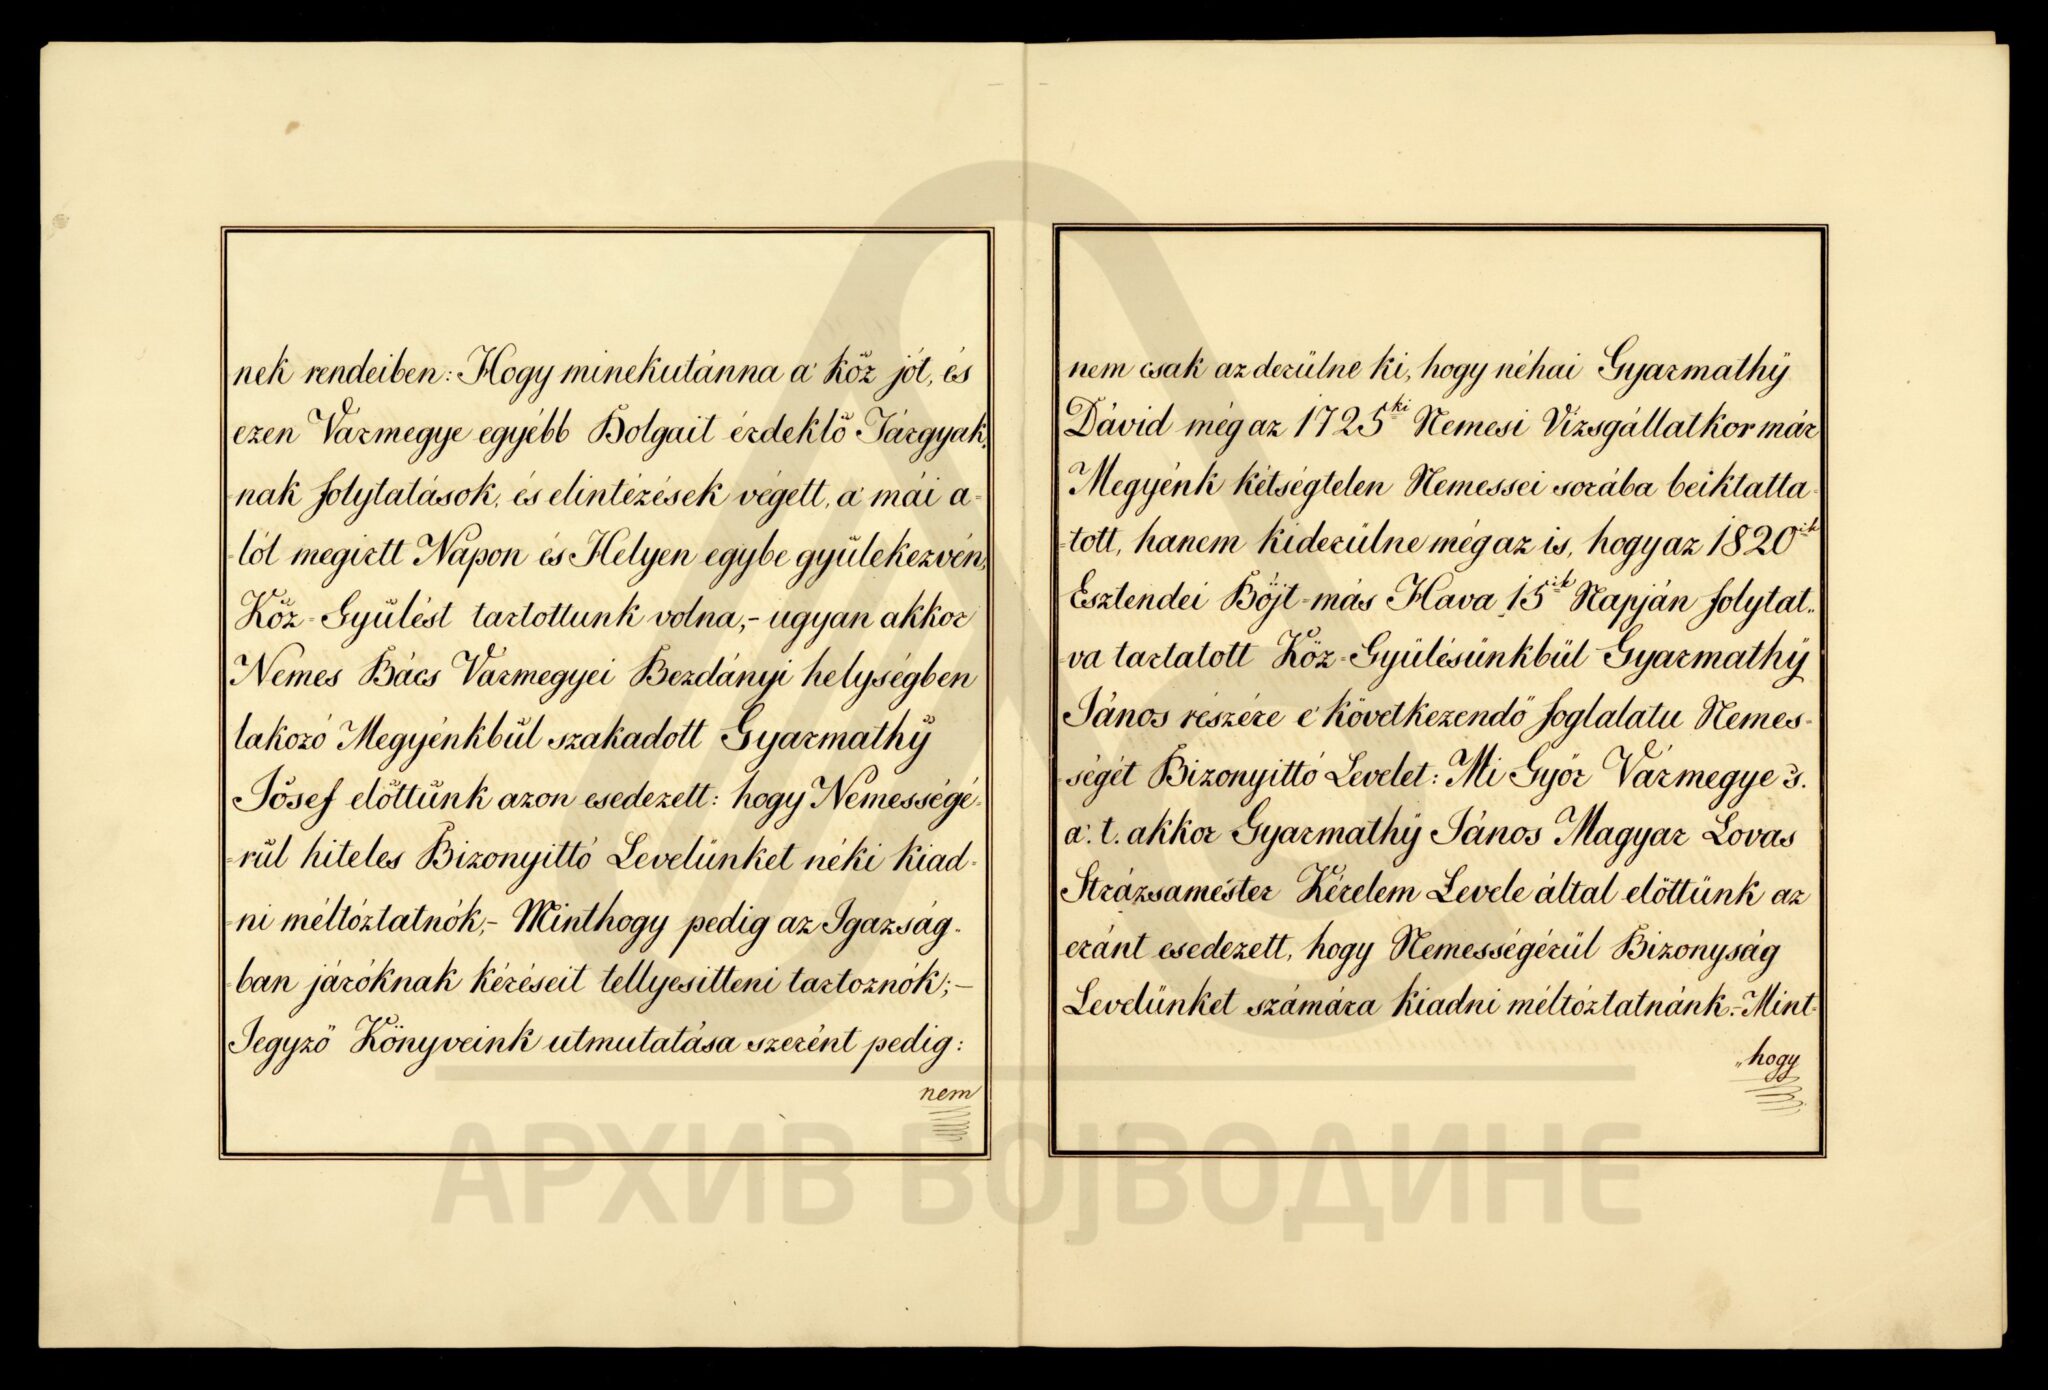 nek rendeiben: Hogy minekutánna a' köz jót, és
ezen Vármegye egyébb Dolgait érdeklő Tárgyak-
nak folytatások, és elintézések végett, a' mái a-
-lól megirtt Napon és Helyen egybe gyülekezvén,
Köz-Gyülést tartottunk volna,- ugyan akkor
Nemes Bács Vármegyei Bezdányi helységben
lakozó Megyénkbül szakadott Gyarmathÿ
Jósef előttünk azon esedezett: hogy Nemességé-
-rül hiteles Bizonyittó Levelünket néki kiad-
-ni méltóztatnók,- Minthogy pedig az Igazság-
-ban járóknak kéréseit tellyesitteni tartoznók;-
Jegyző Könyveink utmutatása szerént pedig:
nem
nem csak az derülne ki, hogy néhai Gyarmathÿ
Dávid még az 1725ki Nemesi Vizsgállatkor már
Megyénk kétségtelen Nemessei sorába beiktatta-
-tott, hanem kiderülne még az is, hogy az 1820ik
Esztendei Böjt-más Hava 15ik Napján folytat-
-va tartatott Köz-Gyülésünkbül Gyarmathÿ
János részére e' következendő foglalatu Nemes-
-ségét Bizonyittó Levelet: Mi Győr Vármegye s.
a'. t. akkor Gyarmathÿ János Magyar Lovas
Strázsaméster Kérelem Levele által előttünk az
eránt esedezett, hogy Nemességérül Bizonyság
Levelünket számára kiadni méltóztatnánk.- Mint-
„hogy
АРХИВ ВОЈВОДИНЕ